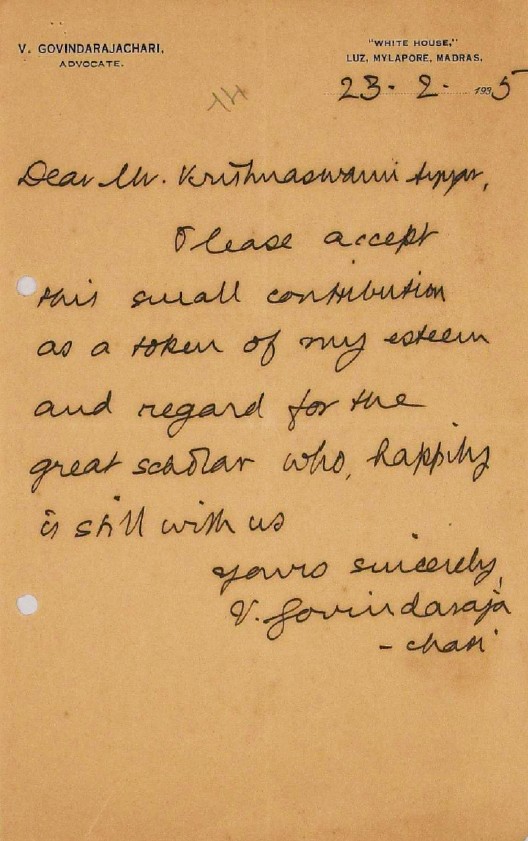 V. GOVINDARAJACHARI,
ADVOCATE.
"WHITE HOUSE,"
LUZ, MYLAPORE, MADRAS,
23-2-1935
Dear Mr. Krishnaswami Aiyar,
Please accept
this small contribution
as a token of my esteem
and regard for the
great scholar who, happily
is still with us
Yours sincerely,
V. Govindaraja
- chari